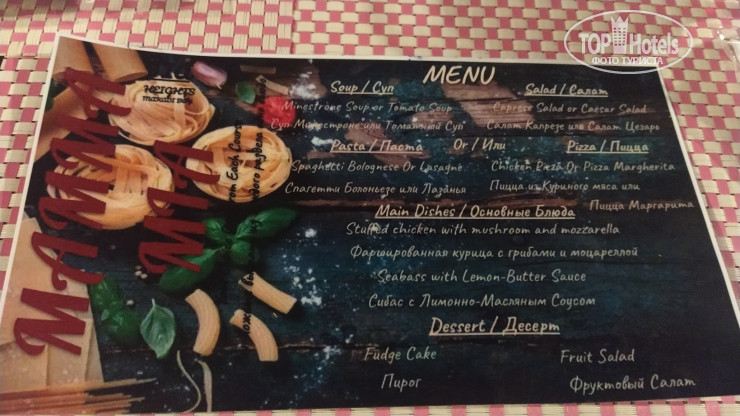 TOP Hotels
ФОТО ТУРИСТА
MAMMA
MIA
HEIGHTS
MENU
Soup / Суп
Minestrone Soup or Tomato Soup
Суп Минестроне или Томатный Суп
Salad / Салат
Caprese Salad or Caesar Salad
Салат Капрезе или Салат Цезарь
Pasta / Паста
Or / Или
Pizza / Пицца
Spaghetti Bolognese Or Lasagne
Спагетти Болоньезе или Лазанья
Chicken Pizza Or Pizza Margherita
Пицца из Куриного мяса или
Пицца Маргарита
Main Dishes / Основные Блюда
Stuffed chicken with mushroom and mozzarella
Фаршированная курица с грибами и моцареллой
Seabass with Lemon-Butter Sauce
Сибас с Лимонно-Масляным Соусом
Dessert / Десерт
Fudge Cake
Fruit Salad
Пирог
Фруктовый Салат
from Each Course